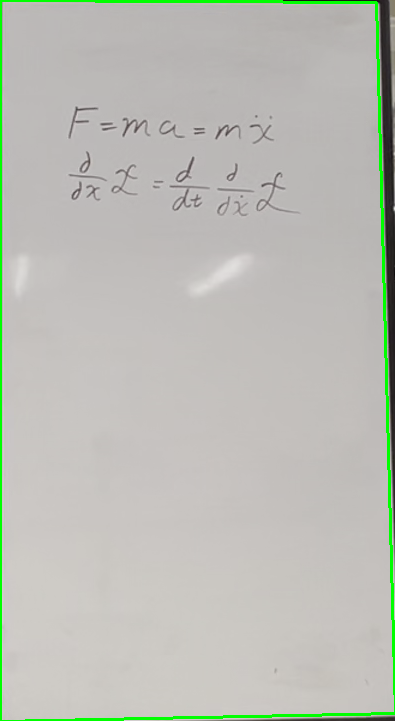 F = ma = mẍ
∂/∂x ℒ = d/dt ∂/∂ẋ ℒ